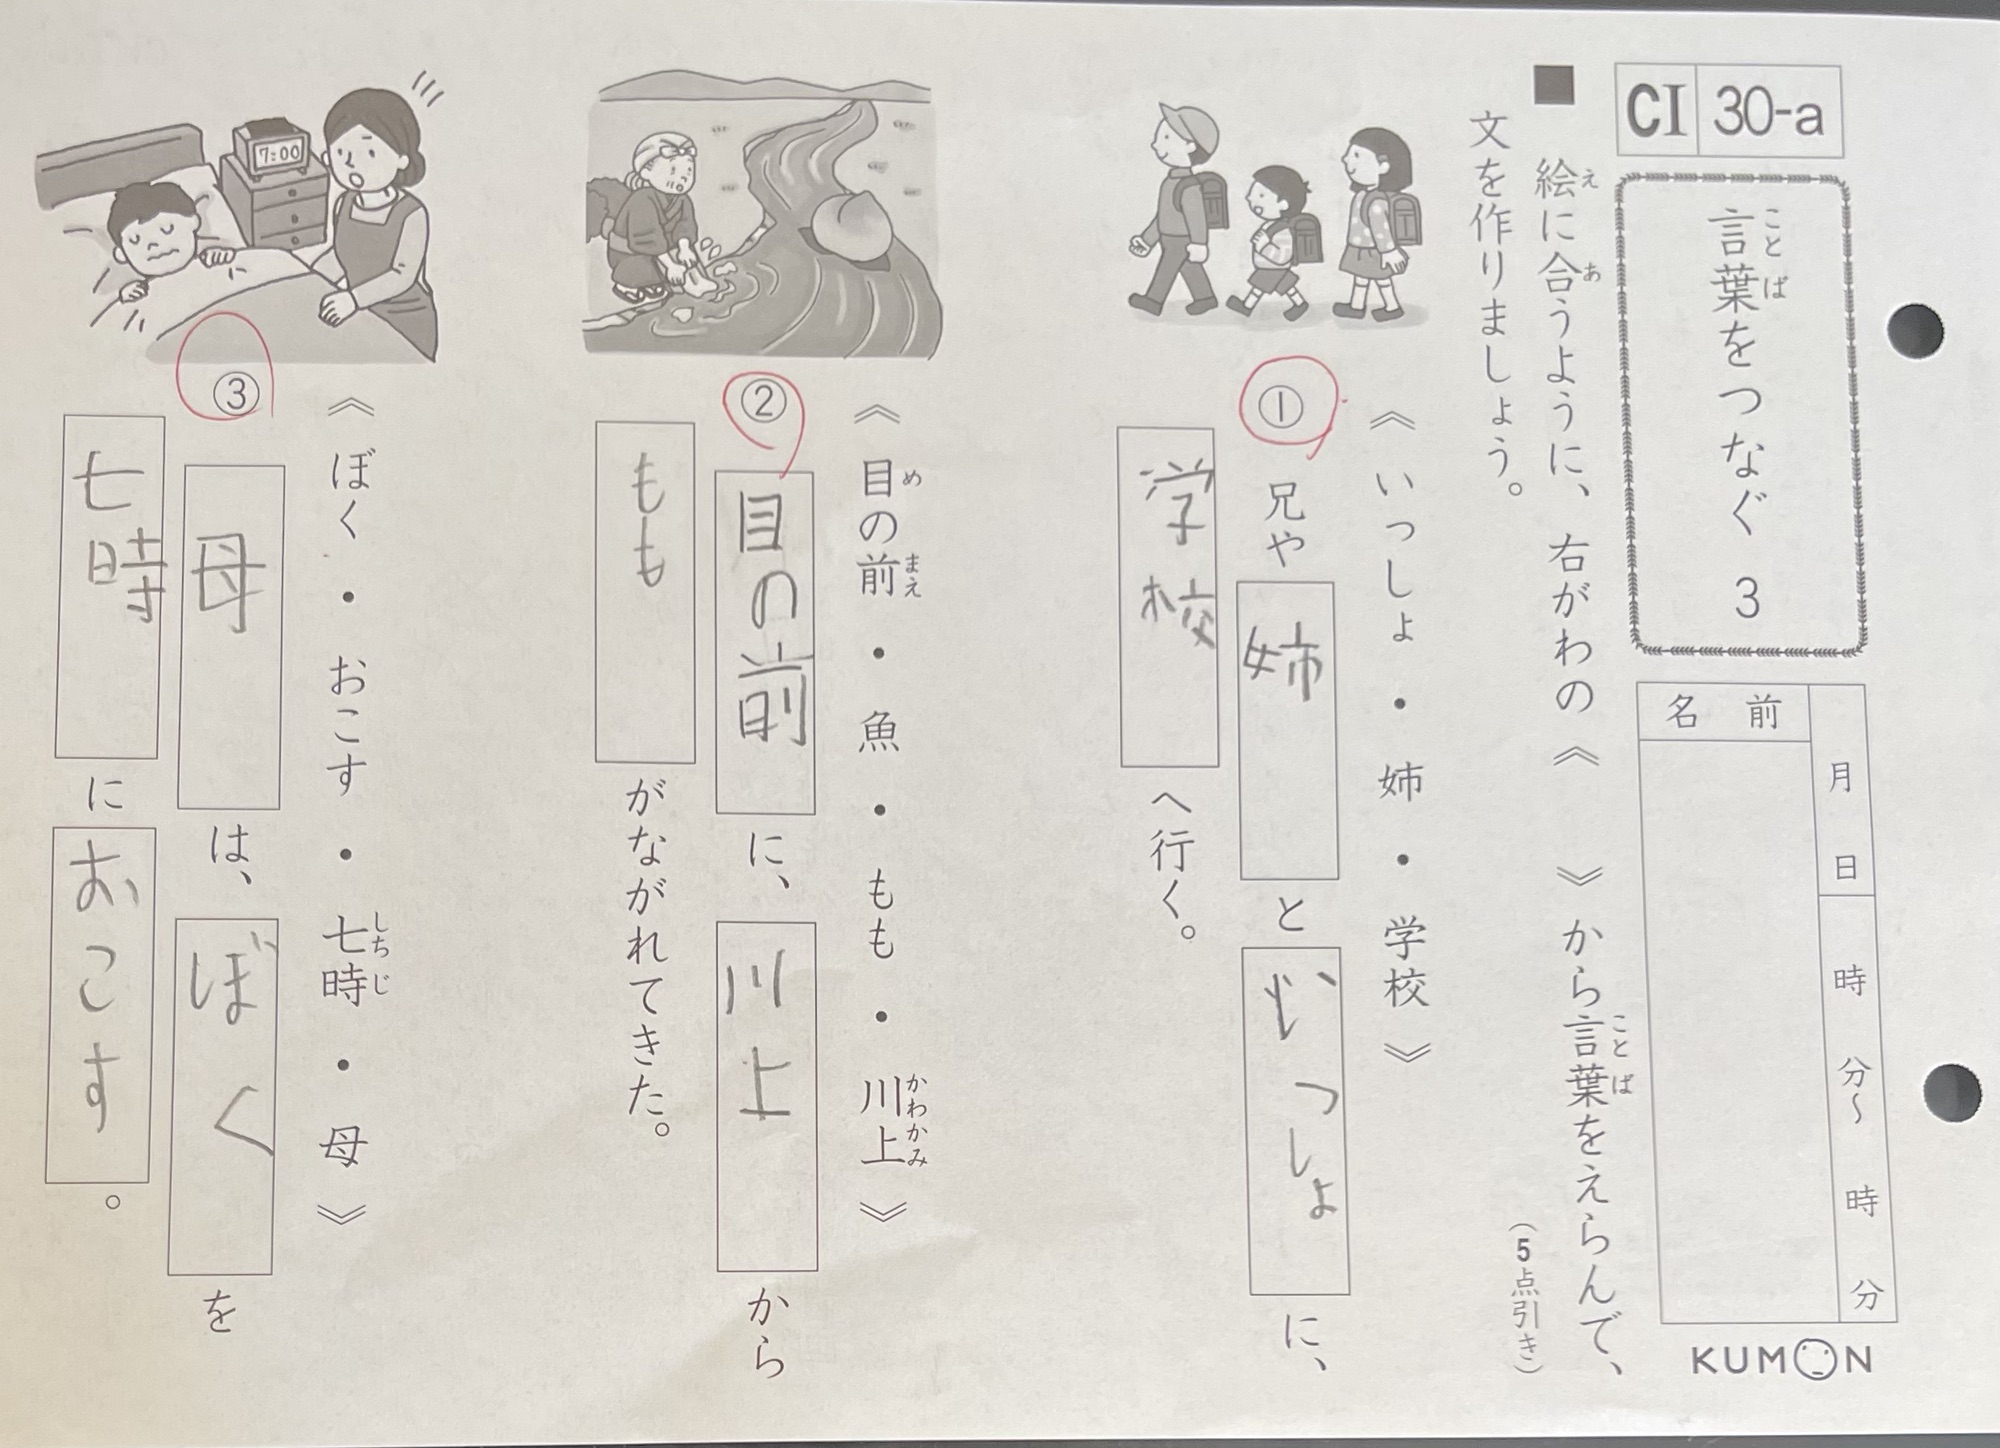 CI 30-a
言葉をつなぐ 3
ことば
月 日 時 分〜 時 分
名前
KUMON
■ 絵に合うように、右がわの《 》から言葉をえらんで、
え あ ことば
文を作りましょう。
（5点引き）
《いっしょ・姉・学校》
① 兄や 姉 と いっしょ に、
学校 へ行く。
《目の前・魚・もも・川上》
め まえ かわかみ
② 目の前 に、 川上 から
もも がながれてきた。
《ぼく・おこす・七時・母》
しちじ
③ 母 は、 ぼく を
七時 に おこす 。
7:00